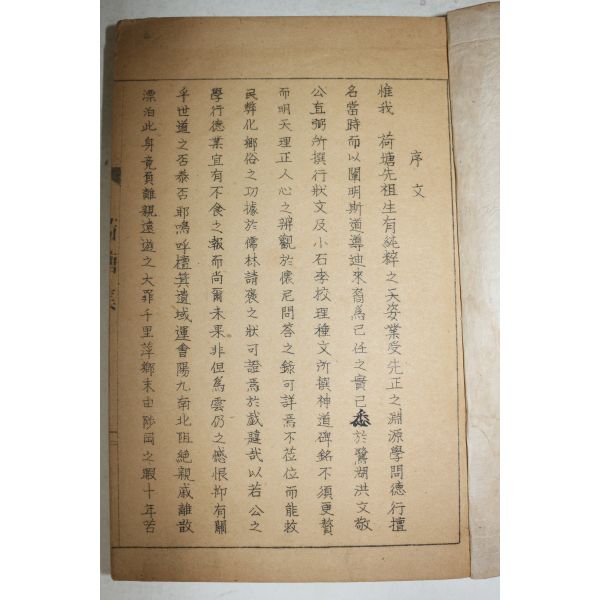 序文
惟我 荷塘先祖生有純粹之天姿業受先正之淵源學問德行擅
名當時而以闡明斯道導迪來裔爲己任之實已悉於鷺湖洪文敬
公直弼所撰行狀文及小石李校理種文所撰神道碑銘不須更贅
而明天理正人心之辨觀於懷尼問答之錄可詳焉不莅位而能救
民弊化鄕俗之功據於儒林請褒之狀可證焉於戱韙哉以若公之
學行德業宜有不食之報而尚爾未果非但爲雲仍之憾恨抑有關
乎世道之否泰否耶嗚呼檀箕遺域運會陽九南北阻絶親戚離散
漂泊此身竟負離親遠遊之大罪千里萍鄕末由陟岡之暇十年若